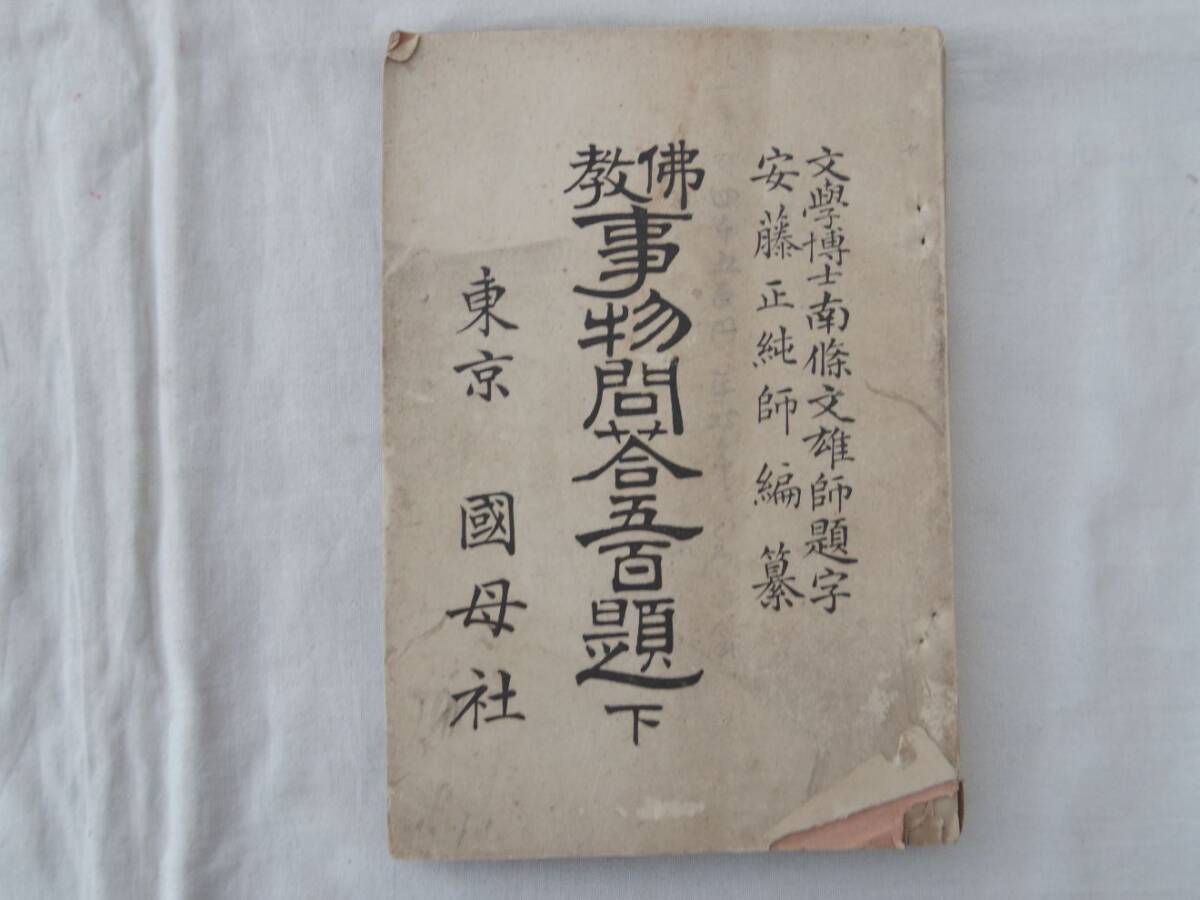 文學博士南條文雄師題字
安藤正純師編纂
佛教事物問荅五百題下
東京 國母社